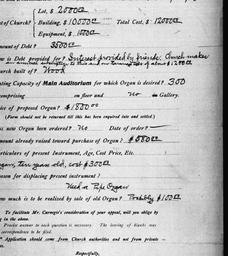 Lot, $ 2000.00
of Church? Building, $ 10000.00 Total Cost, $ 12000.00
Equipment, $
mount of Debt? $5000.00
is Debt provided for? Interest provided by friends. Church makes
urch built of? Wood
ating Capacity of Main Auditorium for which Organ is desired? 300
comprising on floor and no in Gallery.
ice of proposed Organ? $1500.00
(Form should not be returned till this has been enquired into and settled.)
as new Organ been ordered? No Date of order?
mount already raised toward purchase of Organ? $
articulars of present Instrument, Age, Cost Price, Etc.
gan, ten years old, cost $300.00
eason for displacing present instrument?
Need a Pipe Organ
ow much is to be realized by sale of old Organ? Probably $100.00
To facilitate Mr. Carnegie's consideration of your appeal, will you oblige by
ng in the above.
Precise answer to each question is necessary. The leaving of blanks may
correspondence to be filed.
Application should come from Church authorities and not from private
Respectfully,